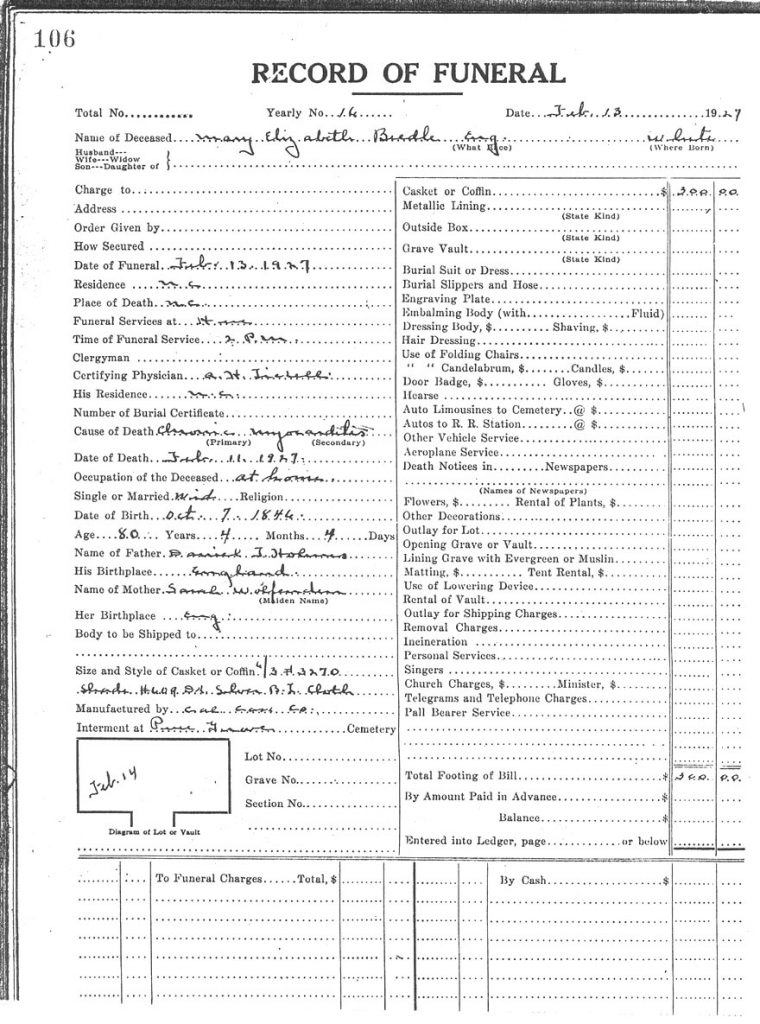 106
RECORD OF FUNERAL
Total No............ Yearly No..16...... Date...Feb. 13..............1927
Name of Deceased....Mary Elizabeth Bredle Eng. White
(What Race) (Where Born)
Husband---
Wife---Widow
Son---Daughter of
Charge to
Address
Order Given by
How Secured
Date of Funeral...Feb. 13. 1927
Residence
Place of Death
Funeral Services at...Home
Time of Funeral Service...2 P.M.
Clergyman
Certifying Physician...A. H.
His Residence
Number of Burial Certificate
Cause of Death Chronic myocarditis
(Primary) (Secondary)
Date of Death...Feb. 11. 1927
Occupation of the Deceased...at home
Single or Married.Wid....Religion
Date of Birth...Oct. 7. 1846
Age...80...Years...4...Months...4...Days
Name of Father
His Birthplace...England
Name of Mother.Sarah
(Maiden Name)
Her Birthplace...Eng.
Body to be Shipped to
Size and Style of Casket or Coffin
Silver Cloth
Manufactured by...Cal. Co.
Interment at Cemetery
Feb. 14
Diagram of Lot or Vault
Lot No.
Grave No.
Section No.
Casket or Coffin $ 300 00
Metallic Lining
(State Kind)
Outside Box
(State Kind)
Grave Vault
(State Kind)
Burial Suit or Dress
Burial Slippers and Hose
Engraving Plate
Embalming Body (with..................Fluid)
Dressing Body, $.......... Shaving, $
Hair Dressing
Use of Folding Chairs
" " Candelabrum, $........Candles, $
Door Badge, $........... Gloves, $
Hearse
Auto Limousines to Cemetery..@ $
Autos to R. R. Station..........@ $
Other Vehicle Service
Aeroplane Service
Death Notices in.........Newspapers
(Names of Newspapers)
Flowers, $......... Rental of Plants, $
Other Decorations
Outlay for Lot
Opening Grave or Vault
Lining Grave with Evergreen or Muslin
Matting, $........... Tent Rental, $
Use of Lowering Device
Rental of Vault
Outlay for Shipping Charges
Removal Charges
Incineration
Personal Services
Singers
Church Charges, $.........Minister, $
Telegrams and Telephone Charges
Pall Bearer Service
Total Footing of Bill $ 300 00
By Amount Paid in Advance $
Balance $
Entered into Ledger, page.............or below
To Funeral Charges......Total, $
By Cash $